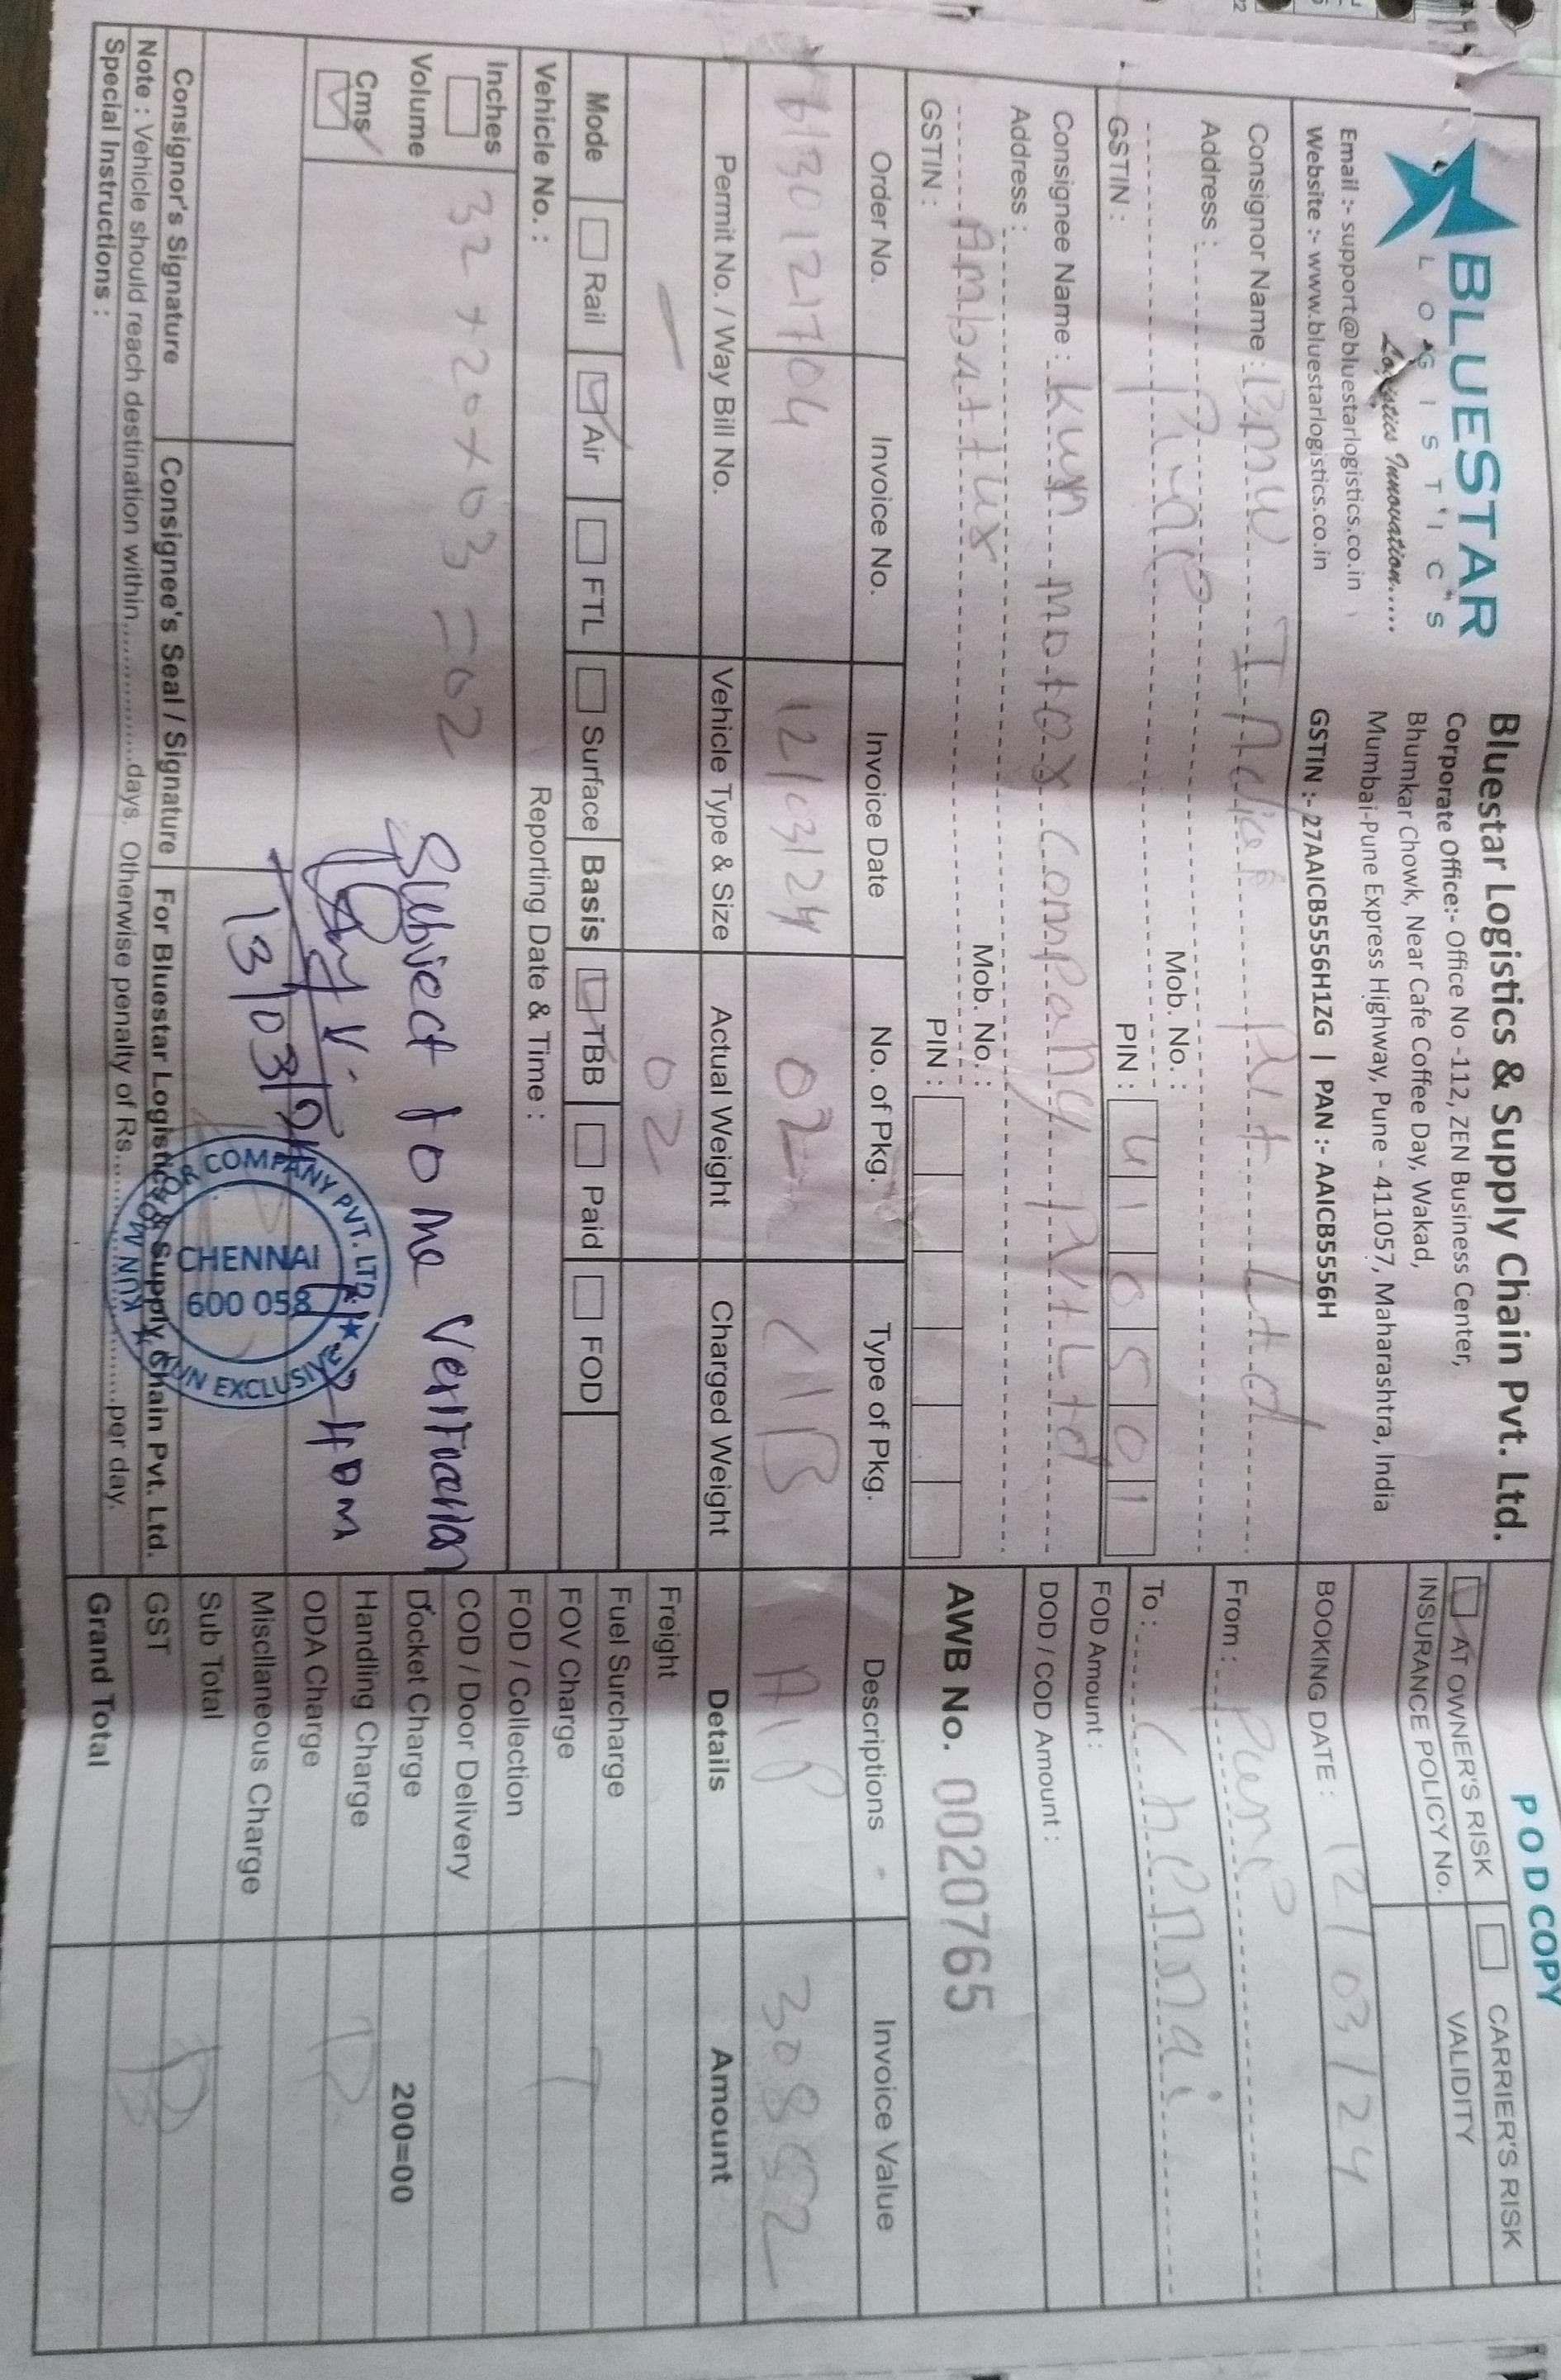 POD COPY
BLUESTAR
LOGISTICS
Logistics Innovation.....
Email :- support@bluestarlogistics.co.in
Website :- www.bluestarlogistics.co.in
Bluestar Logistics & Supply Chain Pvt. Ltd.
Corporate Office:- Office No -112, ZEN Business Center,
Bhumkar Chowk, Near Cafe Coffee Day, Wakad,
Mumbai-Pune Express Highway, Pune - 411057, Maharashtra, India
GSTIN :- 27AAICB5556H1ZG | PAN :- AAICB5556H
AT OWNER'S RISK CARRIER'S RISK
INSURANCE POLICY No. VALIDITY
BOOKING DATE : 12/03/24
Consignor Name : BMW India Pvt Ltd
Address : Pune
Mob. No. :
GSTIN : PIN : 410501
From : Pune
To : Chennai
FOD Amount :
DOD / COD Amount :
Consignee Name : Kun Motor Company Pvt Ltd
Address :
Ambattur Mob. No. :
GSTIN : PIN :
AWB No. 0020765
Order No. Invoice No. Invoice Date No. of Pkg. Type of Pkg. Descriptions Invoice Value
6130121704 12/03/24 02 C/B A/P 30852
Permit No. / Way Bill No. Vehicle Type & Size Actual Weight Charged Weight Details Amount
— 02
Mode Rail Air FTL Surface Basis TBB Paid FOD
Vehicle No. : Reporting Date & Time :
Inches
Volume
Cms
32+20+03=02
Subject to the Verification
13/03/24
KUN MOTOR COMPANY PVT. LTD. ★ KUN EXCLUSIVE ★
CHENNAI
600 058
Freight
Fuel Surcharge
FOV Charge
FOD / Collection
COD / Door Delivery
Docket Charge 200=00
Handling Charge
ODA Charge
Miscllaneous Charge
Sub Total
GST
Grand Total
Consignor's Signature Consignee's Seal / Signature For Bluestar Logistics & Supply Chain Pvt. Ltd.
Note : Vehicle should reach destination within.................days. Otherwise penalty of Rs..............................per day.
Special Instructions :